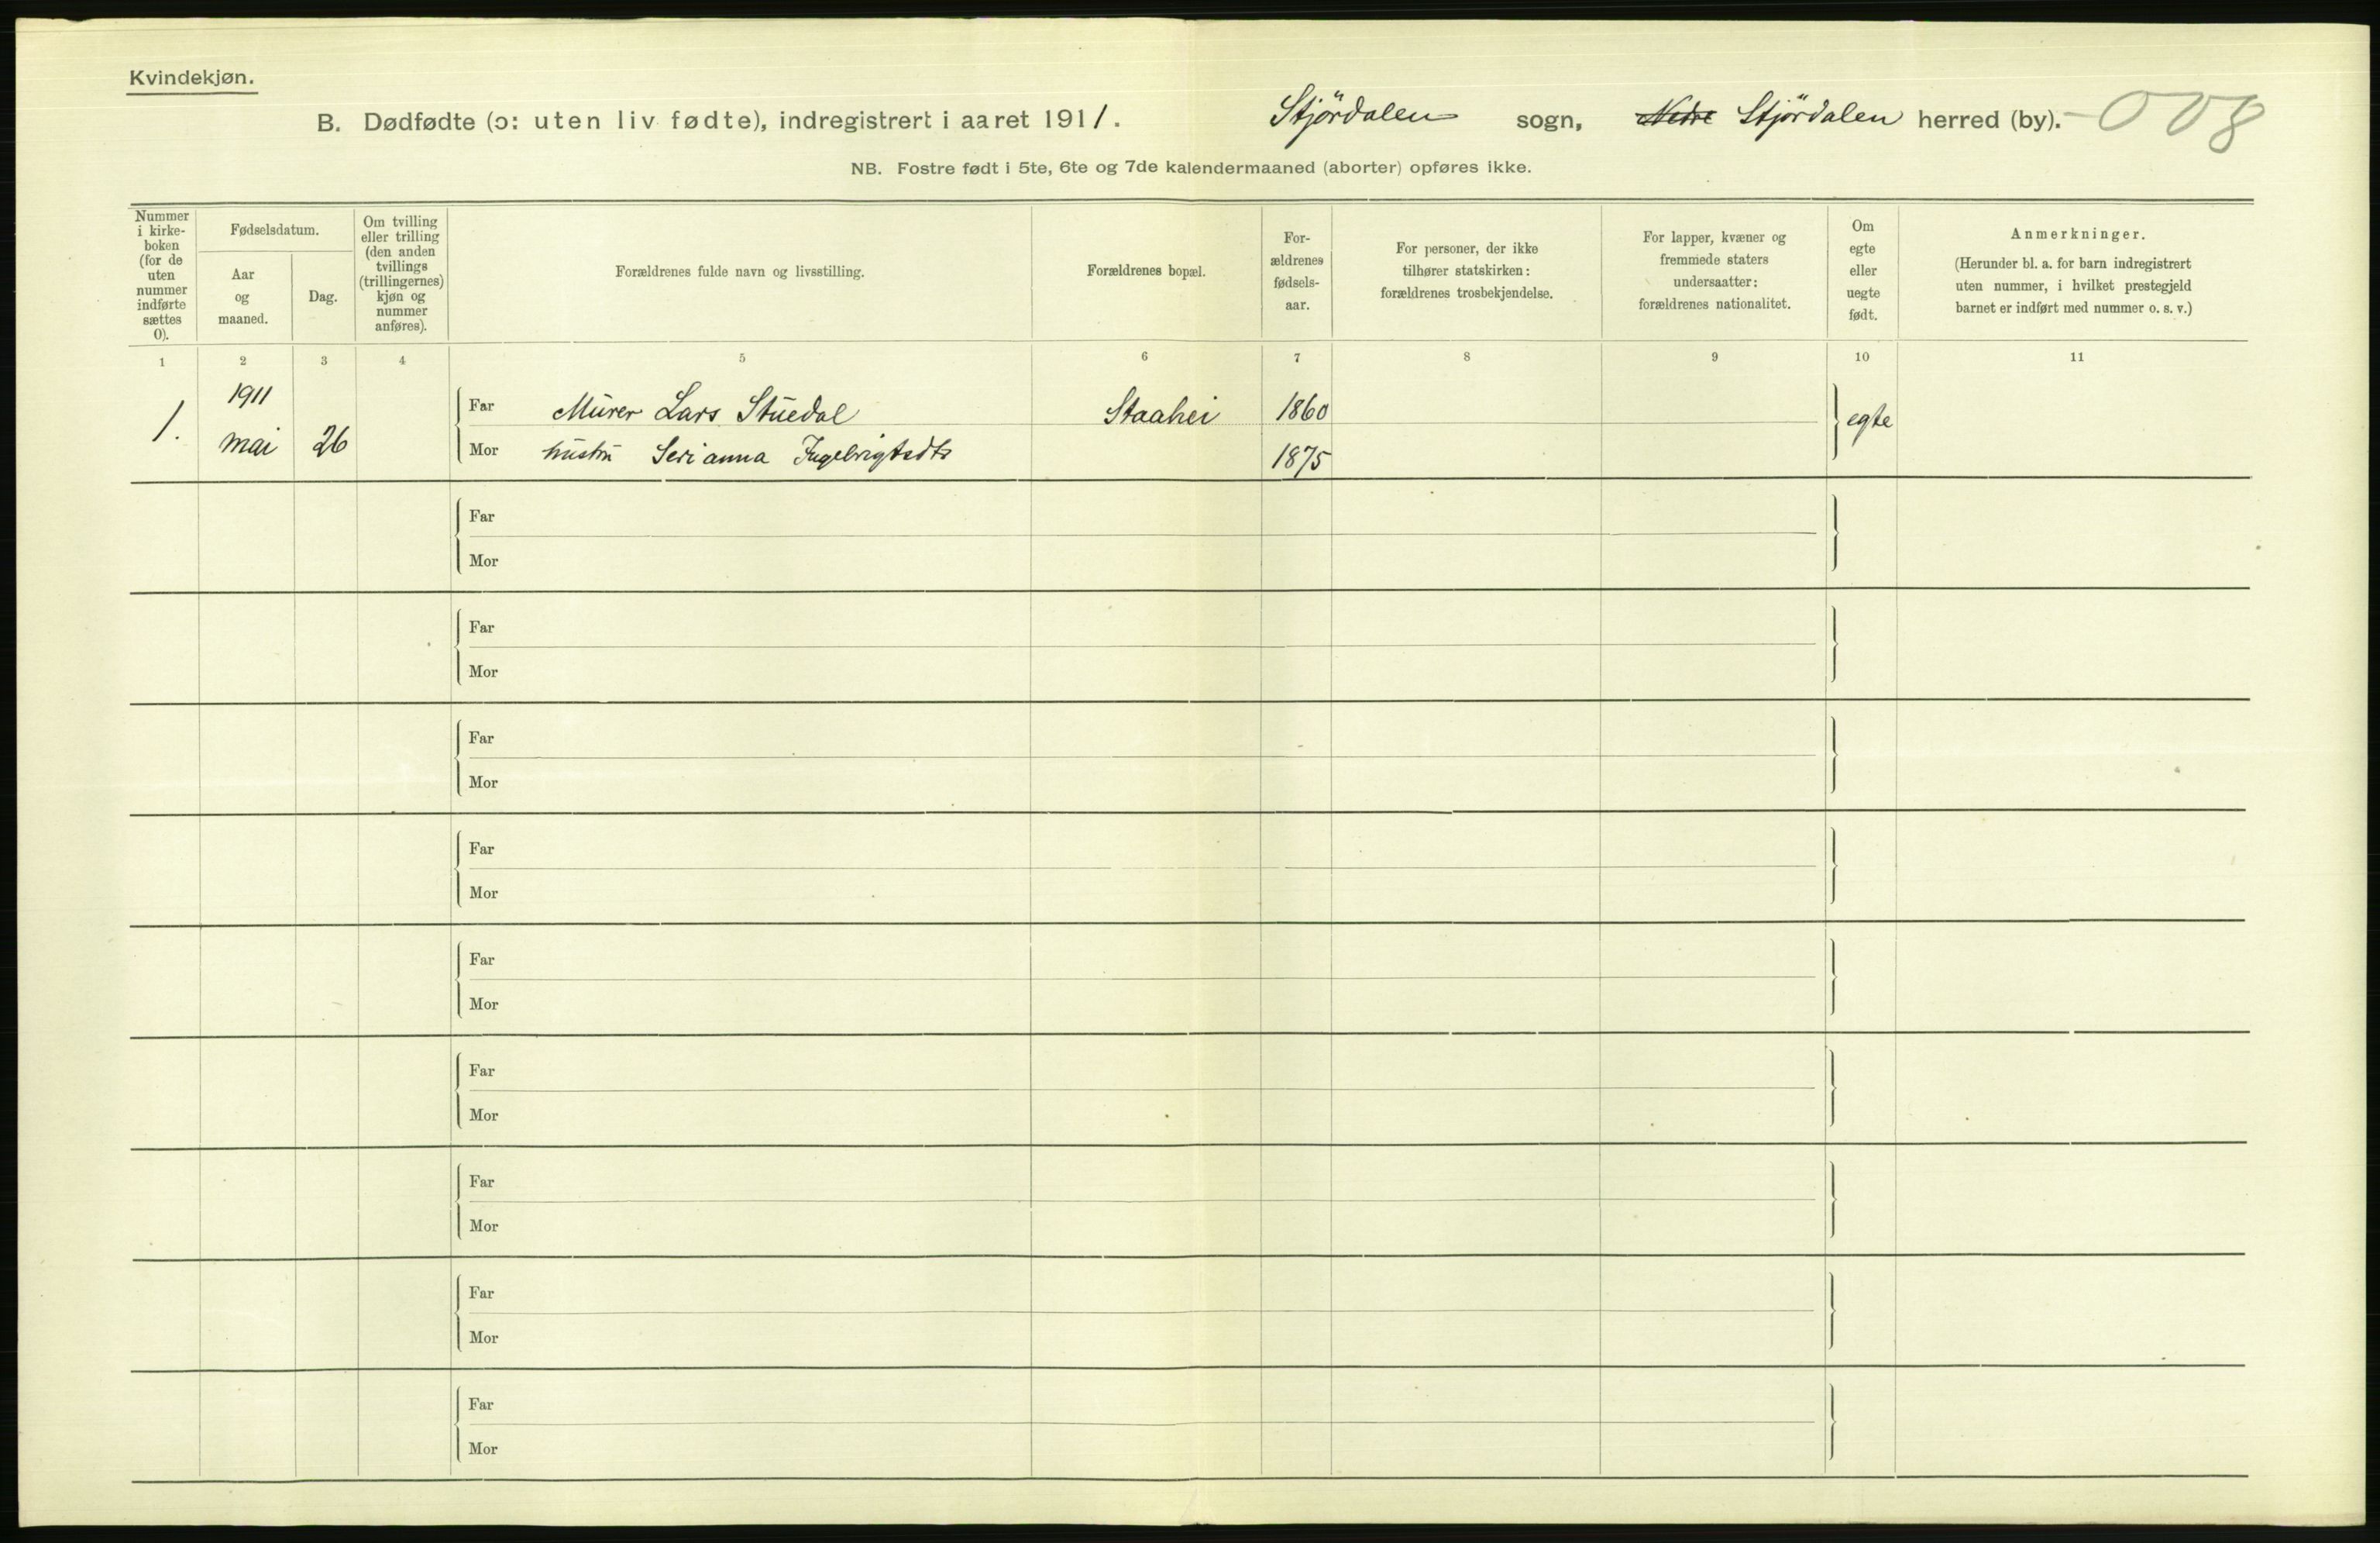 Kvindekjøn.
B. Dødfødte (ɔ: uten liv fødte), indregistrert i aaret 1911. Stjördalen sogn, Nedre Stjördalen herred (by). 008
NB. Fostre født i 5te, 6te og 7de kalendermaaned (aborter) opføres ikke.
Nummer
i kirke-
boken
(for de
uten
nummer
indførte
sættes
0).
Fødselsdatum.
Aar
og
maaned.
Dag.
Om tvilling
eller trilling
(den anden
tvillings
(trillingernes)
kjøn og
nummer
anføres).
Forældrenes fulde navn og livsstilling.
Forældrenes bopæl.
For-
ældrenes
fødsels-
aar.
For personer, der ikke
tilhører statskirken:
forældrenes trosbekjendelse.
For lapper, kvæner og
fremmede staters
undersaatter:
forældrenes nationalitet.
Om
egte
eller
uegte
født.
Anmerkninger.
(Herunder bl. a. for barn indregistrert
uten nummer, i hvilket prestegjeld
barnet er indført med nummer o. s. v.)
1 2 3 4 5 6 7 8 9 10 11
1911
1. mai 26
Far Mürer Lars Stuedal Staahei 1860
egte
Mor hustru Serianna 1875
Far
Mor
Far
Mor
Far
Mor
Far
Mor
Far
Mor
Far
Mor
Far
Mor
Far
Mor
Far
Mor